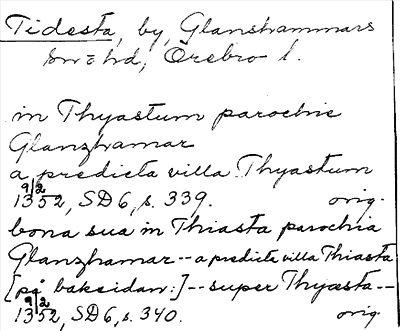 Tidesta, by, Glanshammars
sn o hd, Örebro l.
in Thyastum parochie
Glanzhamar
a predicta villa Thyastum
9/2
1352, SD 6, s. 339. orig.
bona sua in Thiasta parochia
Glanzhamar -- a predicta villa Thiasta
[på baksidan:] -- super Thyæsta --
9/2
1352, SD 6, s. 340. orig.